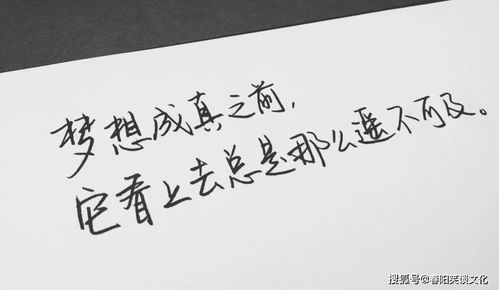 梦想成真之前，
它看上去总是那么遥不可及。
搜狐号@春阳笑谈文化